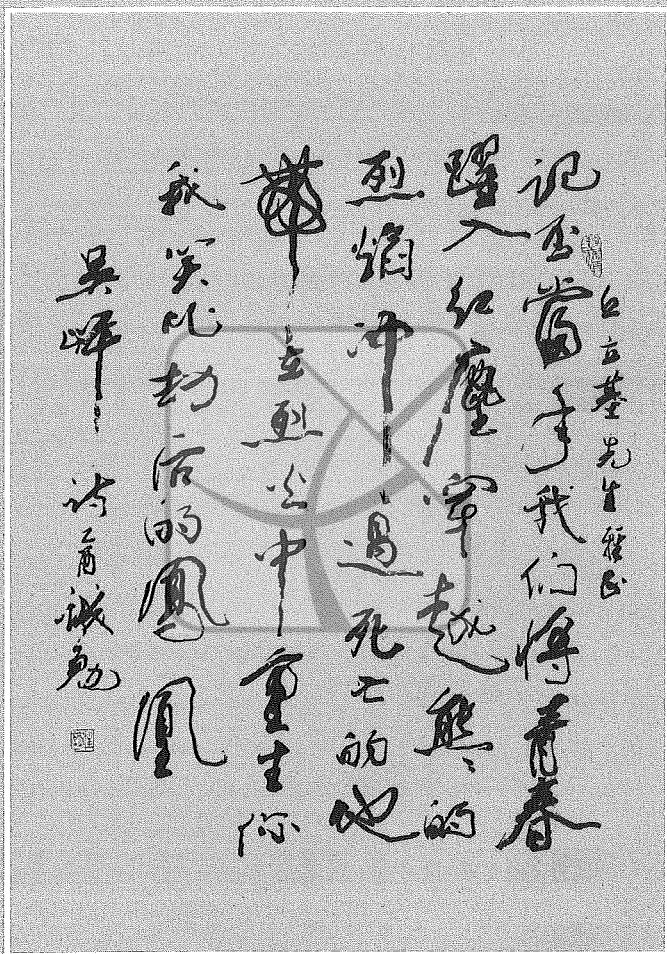 丘立基先生雅正
記否當年我們將青春
躍入紅塵穿越熊々的
烈焰沖過死亡的地
帶在烈火中重生你
我劫后的鳳凰
吳詩乙酉誠勛